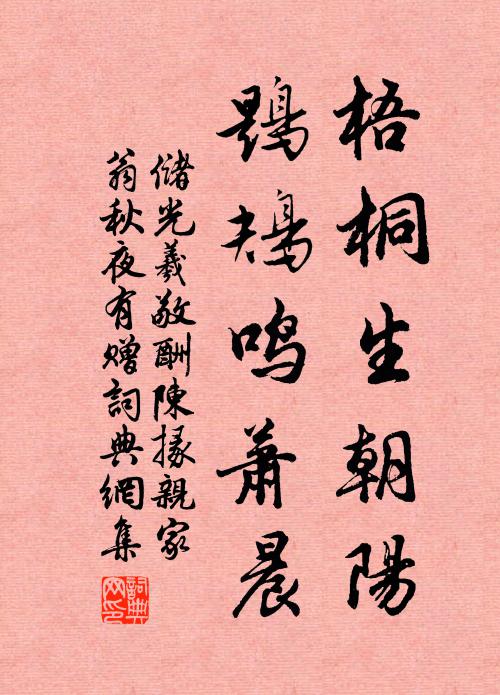 梧桐生朝陽
鶗鴂鳴蕭晨
儲光羲敬酬陳掾親家
翁秋夜有贈詞典網集
詞典
网印